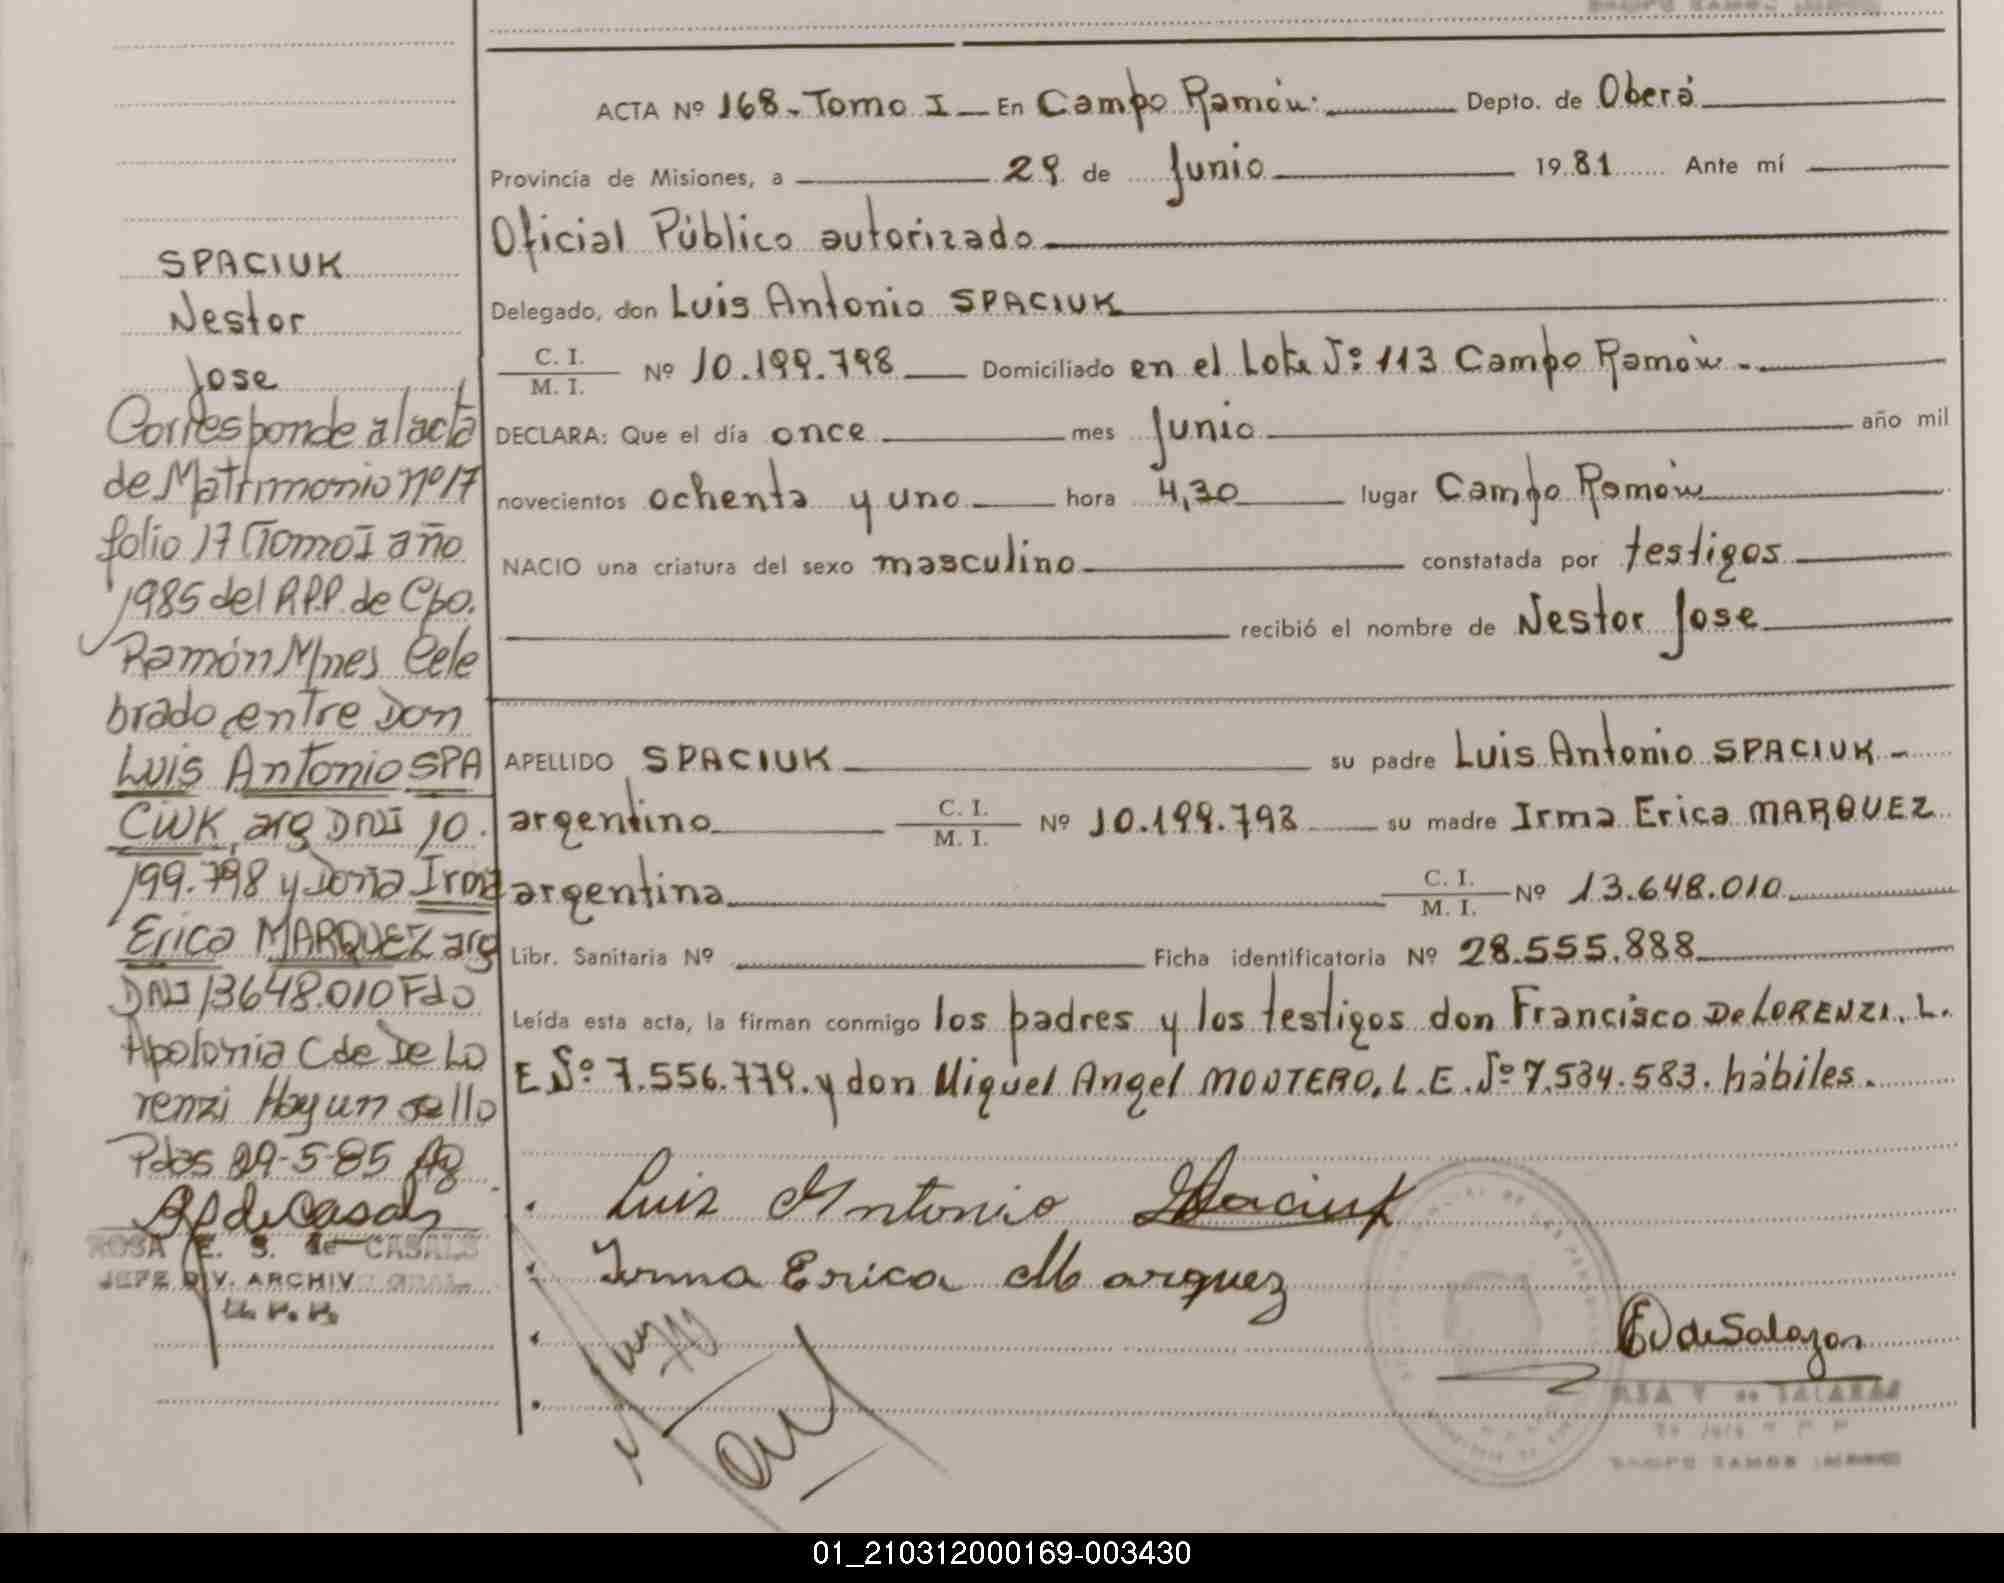 ACTA Nº 168 - Tomo I - En Campo Ramón. Depto. de Oberá
Provincia de Misiones, a 29 de Junio 1981 Ante mí
Oficial Público autorizado
Delegado, don Luis Antonio SPACIUK
C. I. / M. I. Nº 10.199.798 Domiciliado en el Lote Nº 113 Campo Ramón.-
DECLARA: Que el día once mes Junio año mil
novecientos ochenta y uno hora 4,30 lugar Campo Ramón
NACIO una criatura del sexo masculino constatada por testigos
recibió el nombre de Nestor Jose
APELLIDO SPACIUK su padre Luis Antonio SPACIUK -
argentino C. I. / M. I. Nº 10.199.798 su madre Irma Erica MARQUEZ
argentina C. I. / M. I. Nº 13.648.010
Libr. Sanitaria Nº Ficha identificatoria Nº 28.555.888
Leída esta acta, la firman conmigo los padres y los testigos don Francisco De LORENZI, L.
E Nº 7.556.779. y don Miguel Angel MONTERO, L.E. Nº 7.534.583. hábiles.
Luis Antonio Spaciuk
Irma Erica Marquez
EV de Salazar
SPACIUK
Nestor
Jose
Corresponde al acta
de Matrimonio nº 17
folio 17 Tomo I año
1985 del R.P.P. de Cpo.
Ramón Mnes Cele
brado entre Don
Luis Antonio SPA
CIUK, arg DNI 10.
199.798 y Doña Irma
Erica MARQUEZ arg
DNI 13648.010 Fdo
Apolonia C de De Lo
renzi Hay un sello
Pdas 29-5-85
ROSA E. S. de CASALS
JEFE DIV. ARCHIVO GRAL.
R. P. P.
01_210312000169-003430